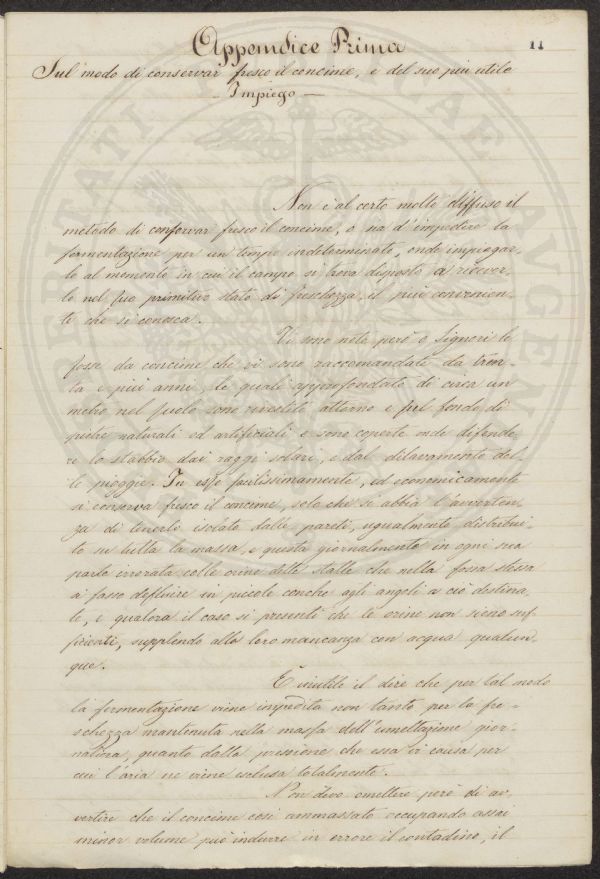 11
Appendice Prima
Sul modo di conservar fresco il concime, e del suo più utile
Impiego
Non è al certo molto diffuso il
metodo di conservar fresco il concime, o sia d'impedire la
fermentazione per un tempo indeterminato, onde impiegar-
lo al momento in cui il campo si trova disposto a ricever-
lo nel suo primitivo stato di freschezza, il più convenien-
te che si conosca.
Vi sono note però o Signori le
fosse da concime che vi sono raccomandate da tren-
ta e più anni, le quali approfondate di circa un
metro nel suolo sono rivestite attorno e pel fondo di
pietre naturali ed artificiali e sono coperte onde difende-
re lo stabbio dai raggi solari, e dal dilavamento del-
le pioggie. In esse facilissimamente, ed economicamente
si conserva fresco il concime, solo che si abbia l'avverten-
za di tenerlo isolato dalle pareti, ugualmente distribui-
to su tutta la massa, e questa giornalmente in ogni sua
parte irrorata colle orine delle stalle che nella fossa stessa
si fanno defluire in piccole conche agli angoli a ciò destina-
te, e qualora il caso si presenti che le orine non sieno suf-
ficienti, supplendo alla loro mancanza con acqua qualun-
que.
È inutile il dire che per tal modo
la fermentazione viene impedita non tanto per la fre-
schezza mantenuta nella massa dell'umettazione gior-
naliera, quanto dalla pressione che essa vi causa per
cui l'aria ne viene esclusa totalmente.
Non devo omettere però di av-
vertire che il concime così ammassato occupando assai
minor volume può indurre in errore il contadino, il
VERITATI
AVGEN